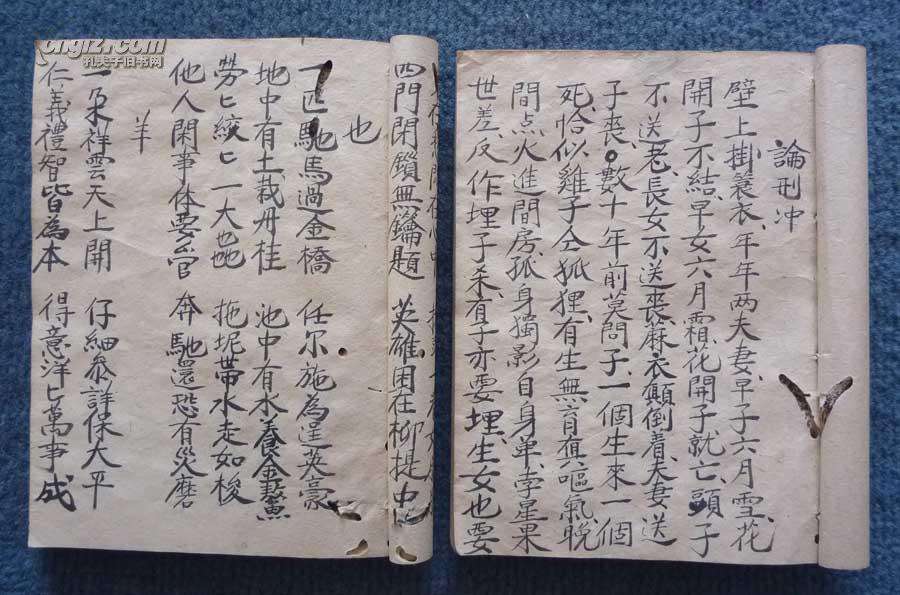 論刑冲
壁上掛蓑衣、年年两夫妻、早子六月雪、花
開子不結、早女六月霜、花開子就亡、頭子
不送老、長女不送丧、麻衣顛倒着、夫妻送
子丧。數十年前莫問子、一個生來一個
死、恰似雞子仝狐狸、有生無育俱嘔氣、晚
間点火進間房、孤身獨影自身单、孛星果
世差、反作埋子杀、有子亦要埋、生女也要
四門閑鎖無鑰題 英雄困在柳提中
也
一匹馳馬過金橋 任尔施為逞英豪
地中有土栽丹桂 池中有水養金鰲
勞匕絞匕一大也 拖坭帶水走如梭
他人閑事休要管 奔馳還恐有災磨
羊
一朶祥雲天上開 仔細叅詳保太平
仁義禮智皆為本 得意洋匕萬事成
cngjz.com
孔夫子旧书网